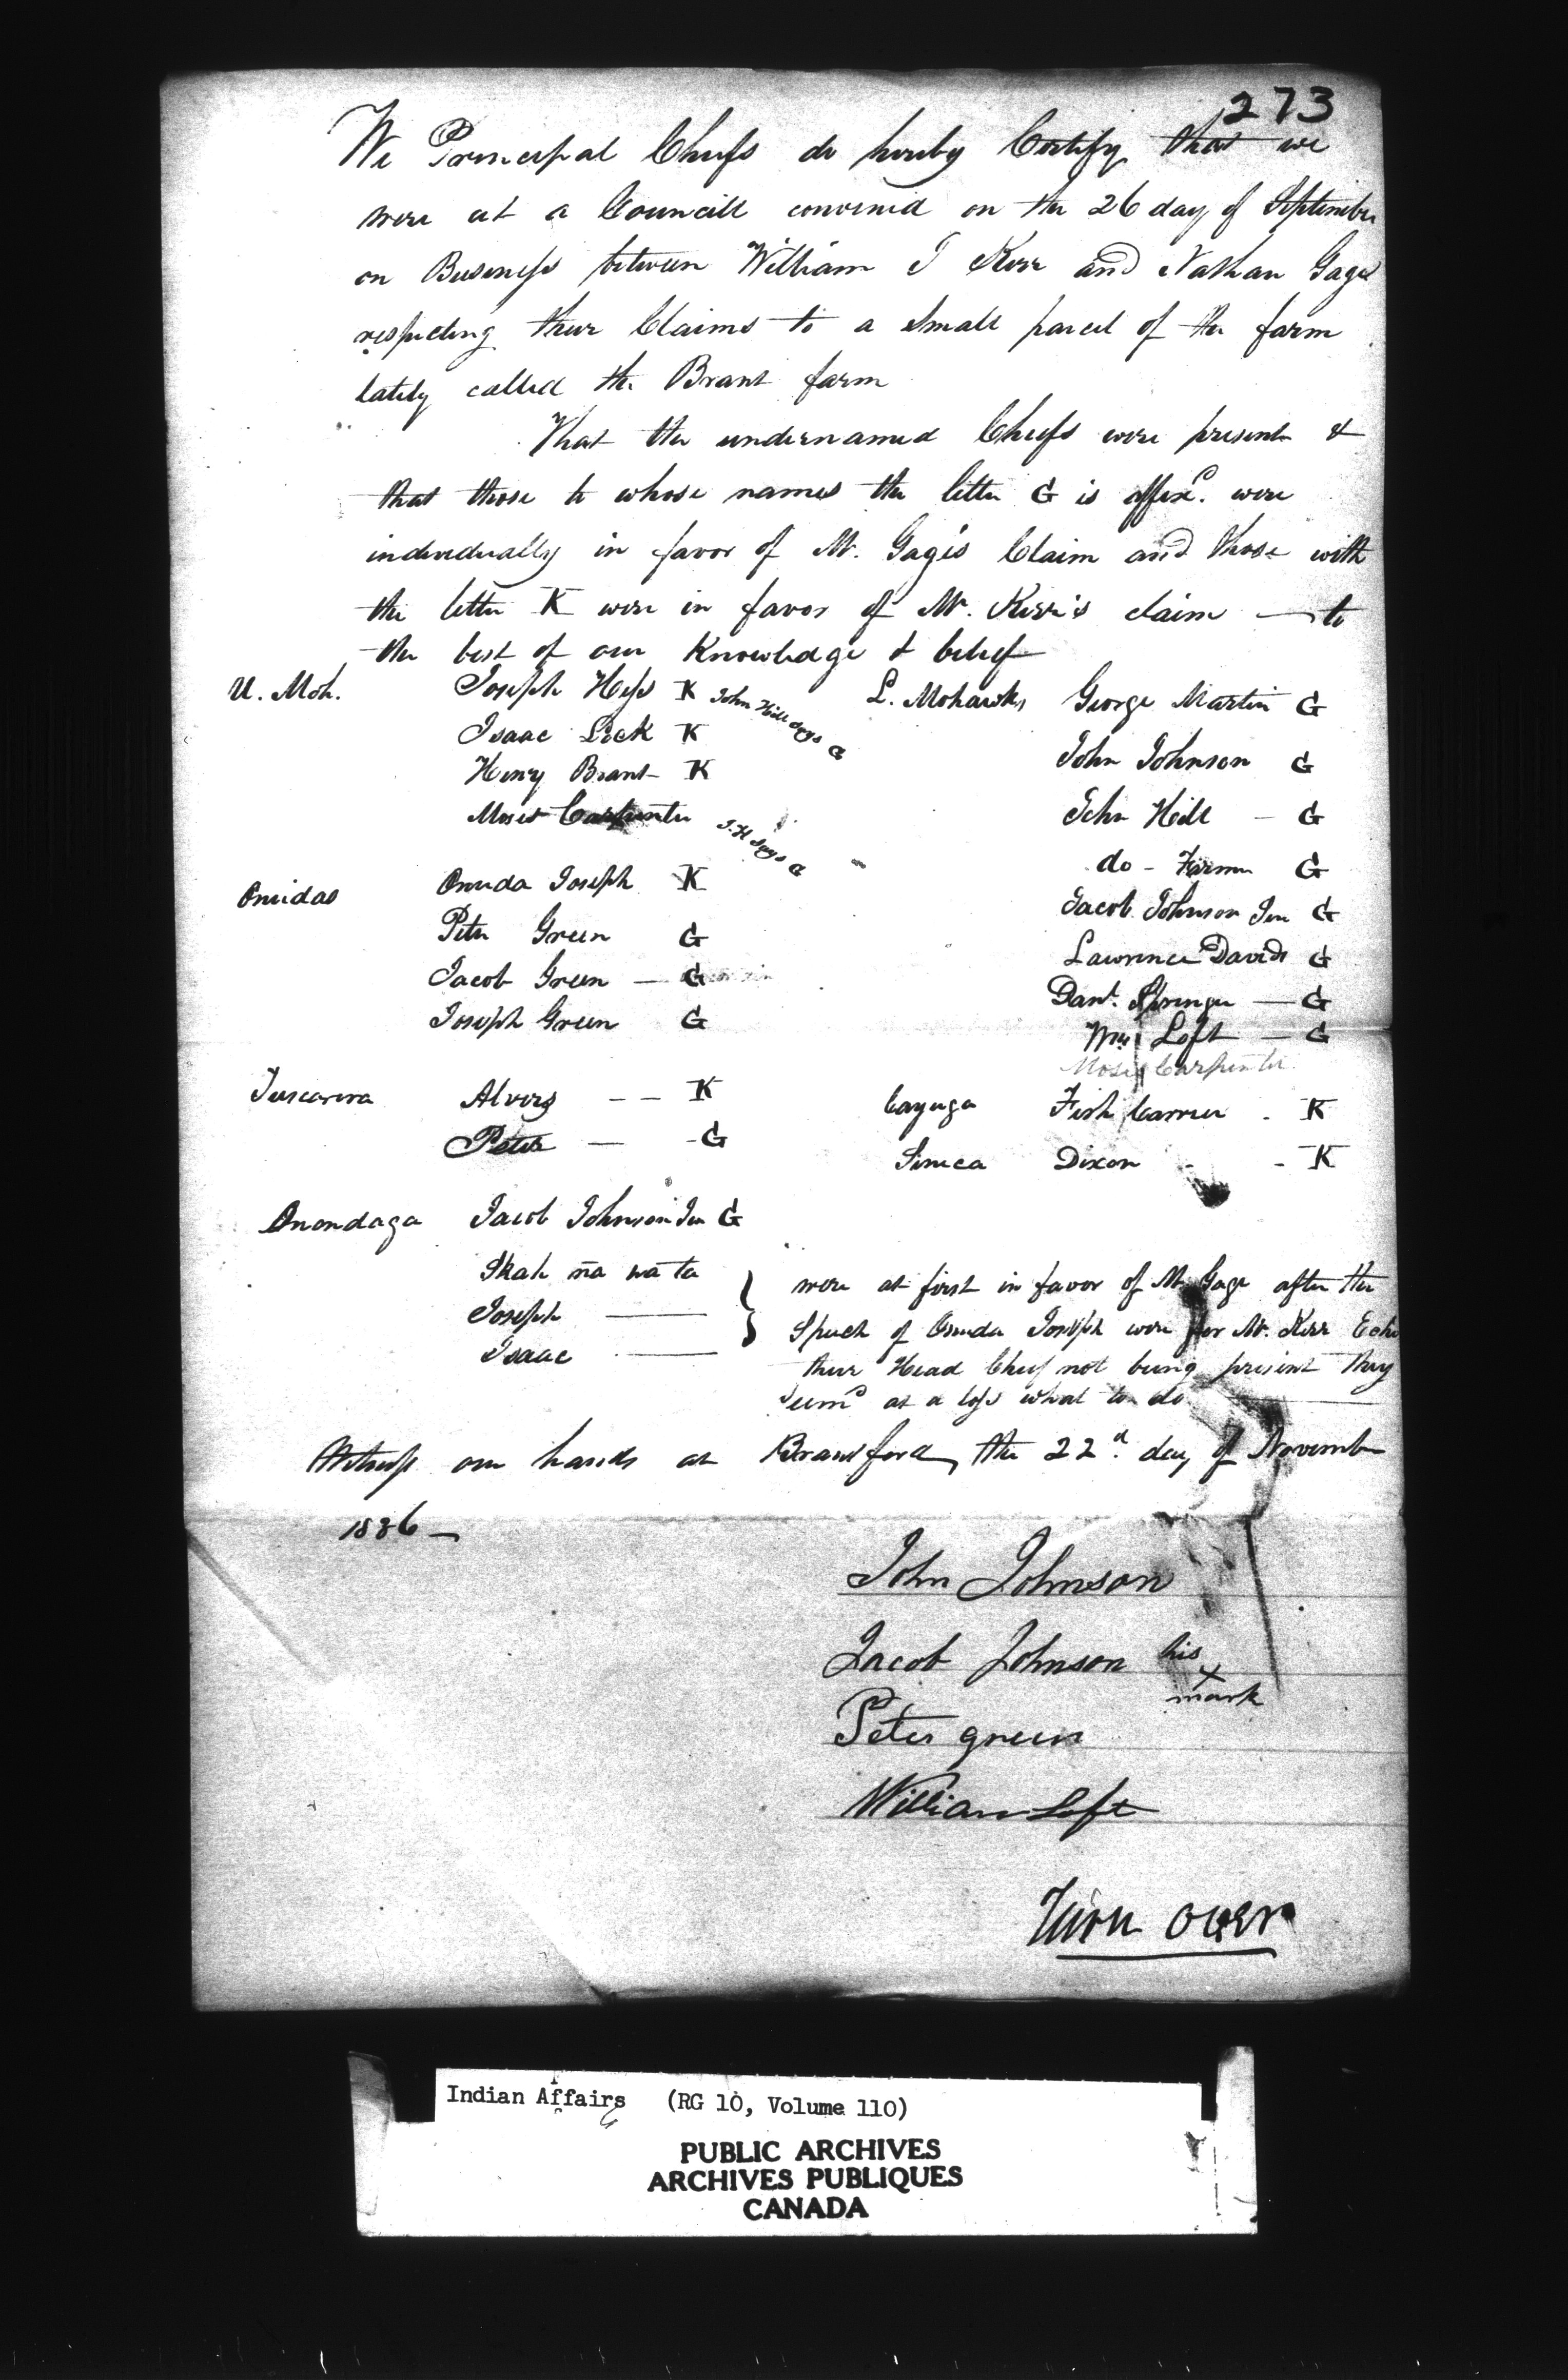 273
We Principal Chiefs do hereby Certify that we
were at a Councill convened on the 26 day of September
on Business between William J Kerr and Nathan Gage
respecting their Claims to a small parcel of the farm
lately called the Brant farm
That the undernamed Chiefs were present &
that those to whose names the letter G is affixd. were
individually in favor of Mr. Gage's Claim and those with
the letter K were in favor of Mr. Kerr's claim — to
the best of our Knowledge & belief
U. Moh. Joseph Hess K John Hill says G
Isaac Lick K
Henry Brant K
Moses Carpenter J.H says G
Oneidas Oneida Joseph K
Peter Green G
Jacob Green — G
Joseph Green G
Tuscarora Alvers — — K
Peter — G
Onondaga Jacob Johnson Jun G
Skah na wa te
Joseph —
Isaac —
L. Mohawks George Martin G
John Johnson G
John Hill — G
do - Farmer G
Jacob Johnson Jun G
Lawrence Davids G
Danl. Springer — G
Wm Loft — G
Moses Carpenter
Cayuga Fish Carrier - K
Seneca Dixon - - K
were at first in favor of Mr Gage after the
Speech of Oneida Joseph were for Mr. Kerr
their Head Chief not being present they
seemd at a loss what to do
Witness our hands at Brantford, the 22d. day of November
1836 —
John Johnson
Jacob Johnson his x mark
Peter green
William Loft
Turn over
Indian Affairs (RG 10, Volume 110)
PUBLIC ARCHIVES
ARCHIVES PUBLIQUES
CANADA